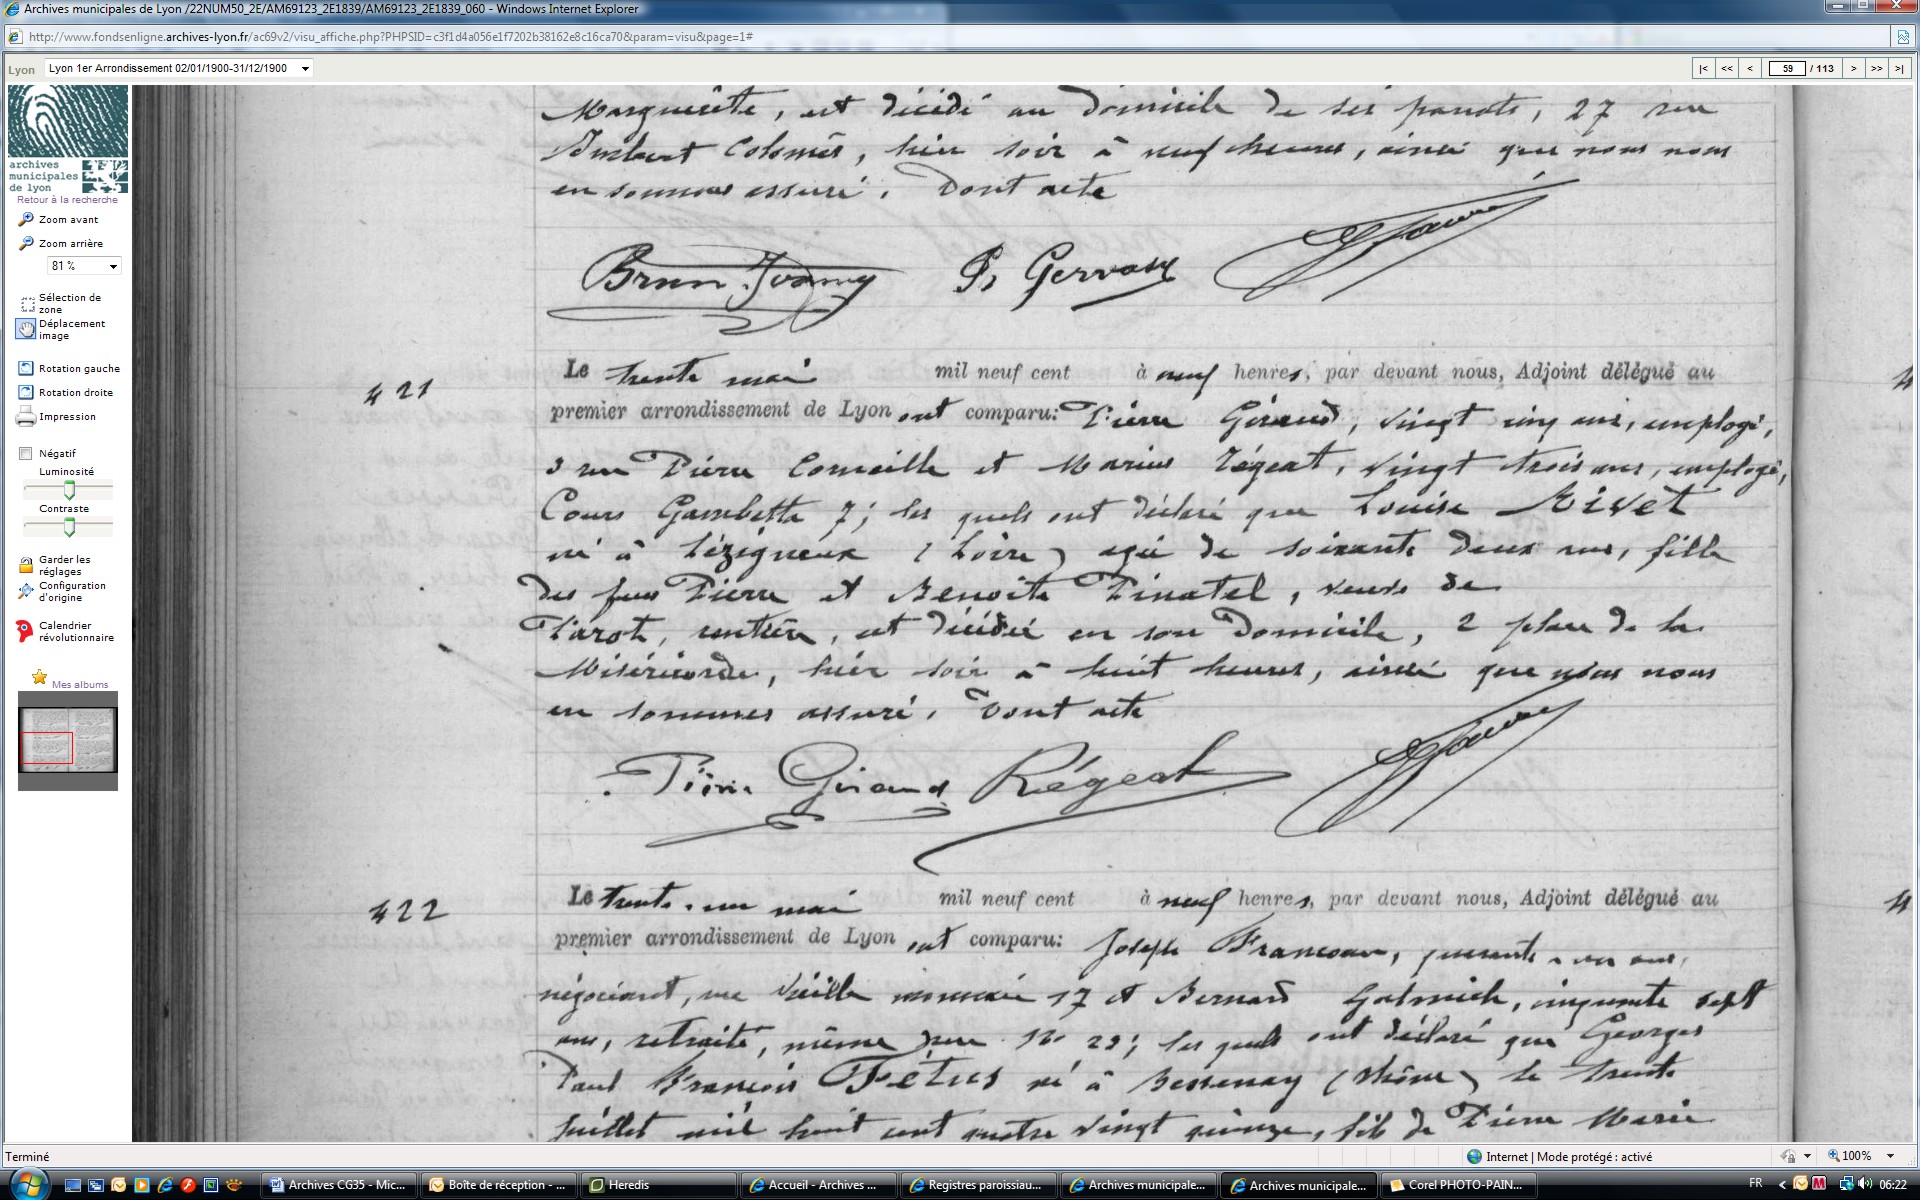 Archives municipales de Lyon /22NUM50_2E/AM69123_2E1839/AM69123_2E1839_060 - Windows Internet Explorer
http://www.fondsenligne.archives-lyon.fr/ac69v2/visu_affiche.php?PHPSID=c3f1d4a056e1f7202b38162e8c16ca70&param=visu&page=1#
Lyon
Lyon 1er Arrondissement 02/01/1900-31/12/1900
|< << < 59 / 113 > >> >|
archives
municipales
de lyon
Retour à la recherche
Zoom avant
Zoom arrière
81 %
Sélection de
zone
Déplacement
image
Rotation gauche
Rotation droite
Impression
Négatif
Luminosité
Contraste
Garder les
réglages
Configuration
d'origine
Calendrier
révolutionnaire
Mes albums
Marguerite, est décédé au domicile de ses parents, 27 rue
Imbert Colomès, hier soir à neuf heures, ainsi que nous nous
en sommes assuré. Dont acte
Brun P. Gervais
421
Le trente mai mil neuf cent à neuf heures, par devant nous, Adjoint délégué au
premier arrondissement de Lyon ont comparu: Pierre Giraud, vingt cinq ans, employé,
3 rue Pierre Corneille et Marius Régeat, vingt trois ans, employé,
Cours Gambetta 7; les quels ont déclaré que Louise Rivet
né à Lézigneux (Loire) agée de soixante deux ans, fille
des feus Pierre et Benoite Pinatel, veuve de
Parot, rentière, est décédée en son domicile, 2 place de la
Miséricorde, hier soir à huit heures, ainsi que nous nous
en sommes assuré. Dont acte
Pierre Giraud Régeat
422
Le trente-un mai mil neuf cent à neuf heures, par devant nous, Adjoint délégué au
premier arrondissement de Lyon ont comparu: Joseph Francou, quarante-un ans,
négociant, rue Vieille monnaie 17 et Bernard Galmich, cinquante sept
ans, retraité, même rue No 29; les quels ont déclaré que Georges
Paul François Fétus né à Bessenay (Rhône) le trente
juillet mil huit cent quatre vingt quinze, fils de Pierre Marie
Terminé
Internet | Mode protégé : activé
100%
Archives CG35 - Mic...
Boîte de réception - ...
Heredis
Accueil - Archives ...
Registres paroissiau...
Archives municipale...
Archives municipale...
Corel PHOTO-PAIN...
FR
06:22